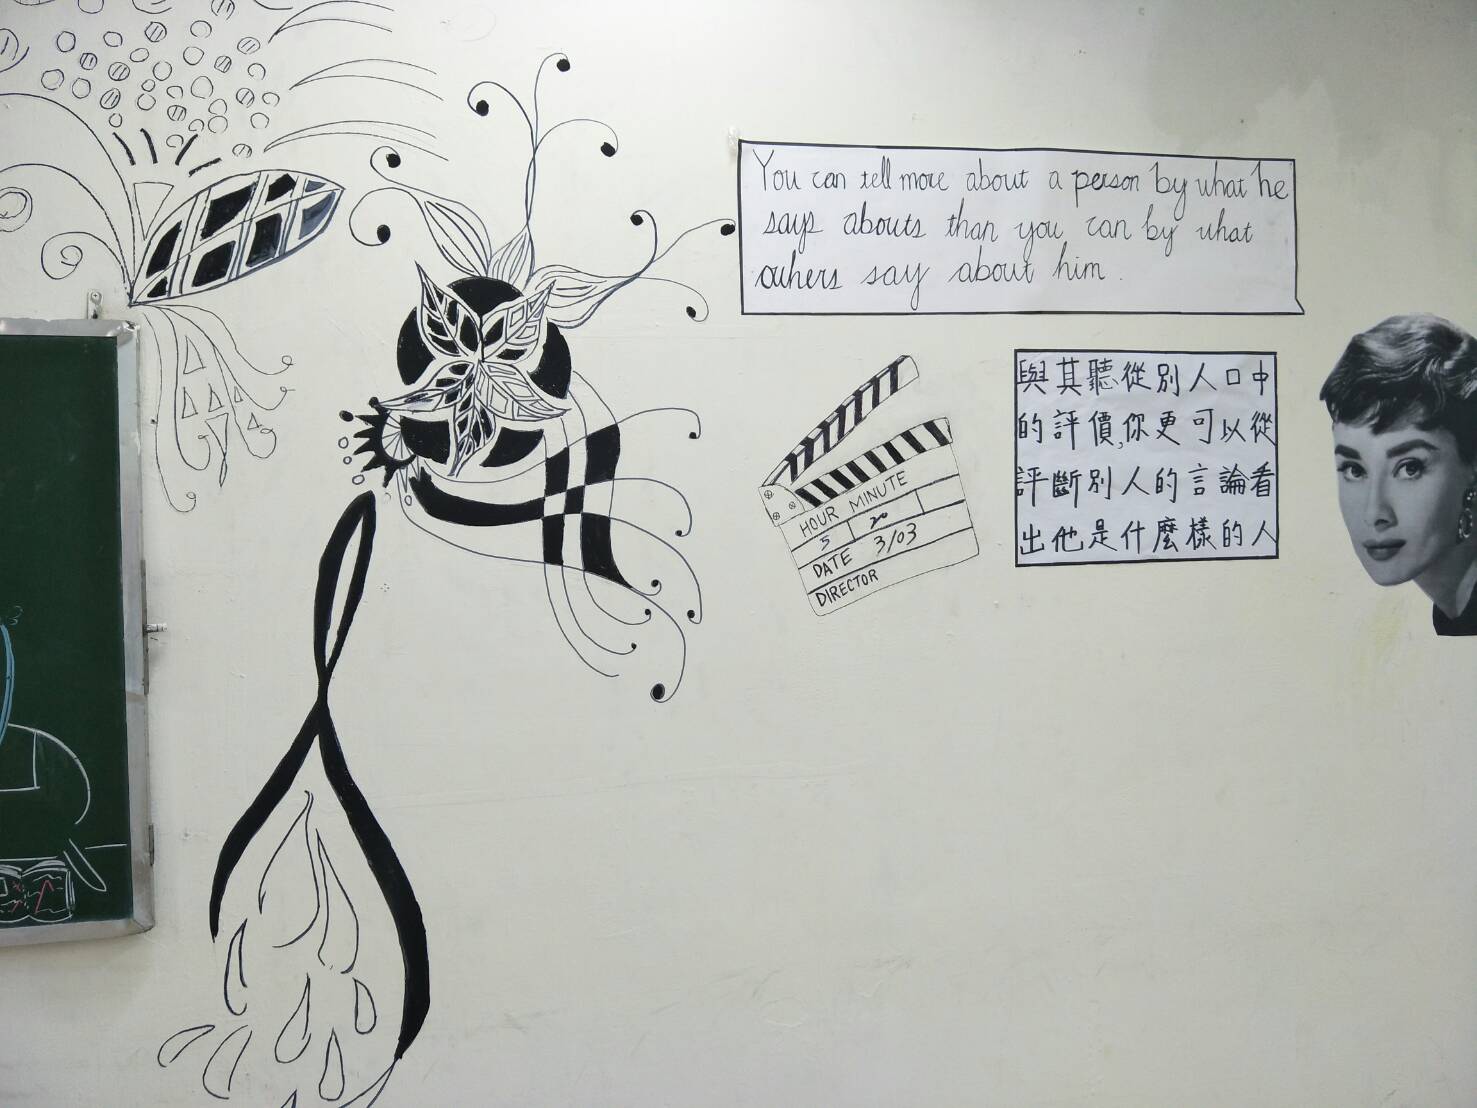 You can tell more about a person by what he
says abouts than you can by what
others say about him.
與其聽從別人口中
的評價,你更可以從
評斷別人的言論看
出他是什麼樣的人
HOUR MINUTE
5 20
DATE 3/03
DIRECTOR